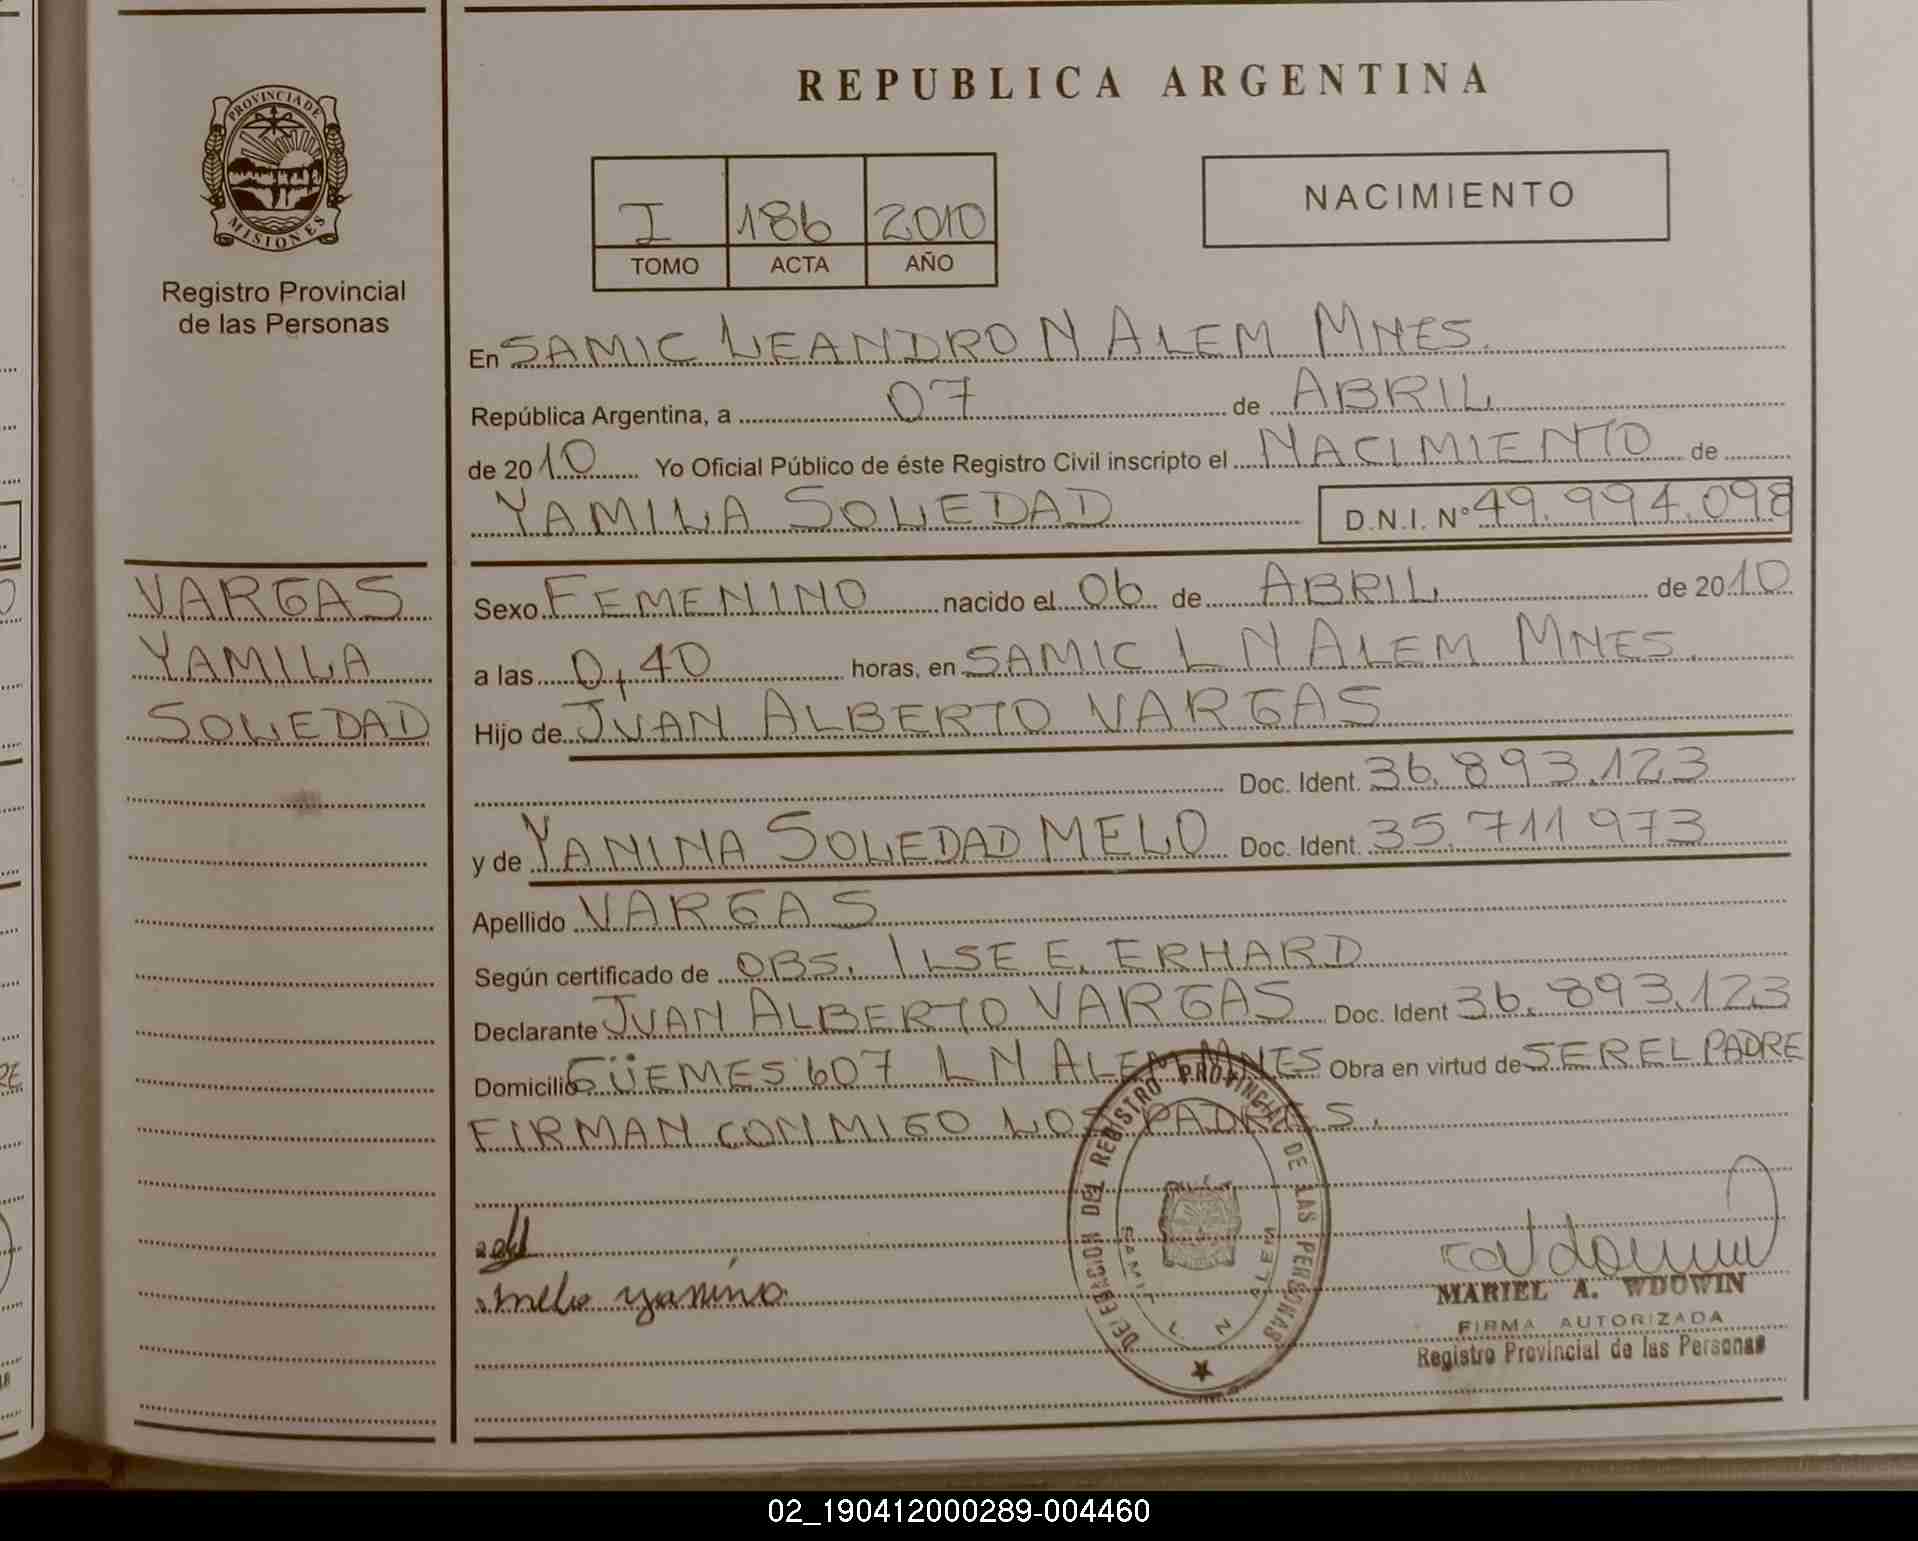 REPUBLICA ARGENTINA
PROVINCIA DE
MISIONES
Registro Provincial
de las Personas
I 186 2010
TOMO ACTA AÑO
NACIMIENTO
En SAMIC LEANDRO N ALEM MNES.
República Argentina, a 07 de ABRIL
de 2010 Yo Oficial Público de éste Registro Civil inscripto el NACIMIENTO de
YAMILA SOLEDAD D.N.I. Nº 49.994.098
VARGAS
YAMILA
SOLEDAD
Sexo FEMENINO nacido el 06 de ABRIL de 2010
a las 0,40 horas, en SAMIC L N ALEM MNES.
Hijo de JUAN ALBERTO VARGAS
Doc. Ident. 36.893.123
y de YANINA SOLEDAD MELO Doc. Ident. 35.711 973
Apellido VARGAS
Según certificado de OBS. ILSE E. ERHARD
Declarante JUAN ALBERTO VARGAS Doc. Ident 36.893.123
Domicilio GÜEMES 607 L N ALEM MNES Obra en virtud de SER EL PADRE
FIRMAN CONMIGO LOS PADRES.
DELEGACION DEL REGISTRO PROVINCIAL DE LAS PERSONAS
SAMIC L N ALEM
melo yanina
MARIEL A. WDOWIN
FIRMA AUTORIZADA
Registro Provincial de las Personas
02_190412000289-004460